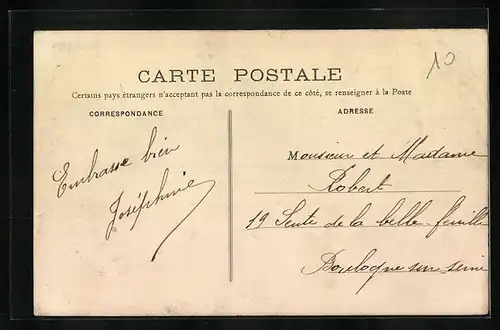 10
CARTE POSTALE
Certains pays étrangers n'acceptant pas la correspondance de ce côté, se renseigner à la Poste
CORRESPONDANCE
ADRESSE
Embrasse bien
Joséphine
Monsieur et Madame
Robert
19 Sente de la belle feuille
Boulogne sur seine